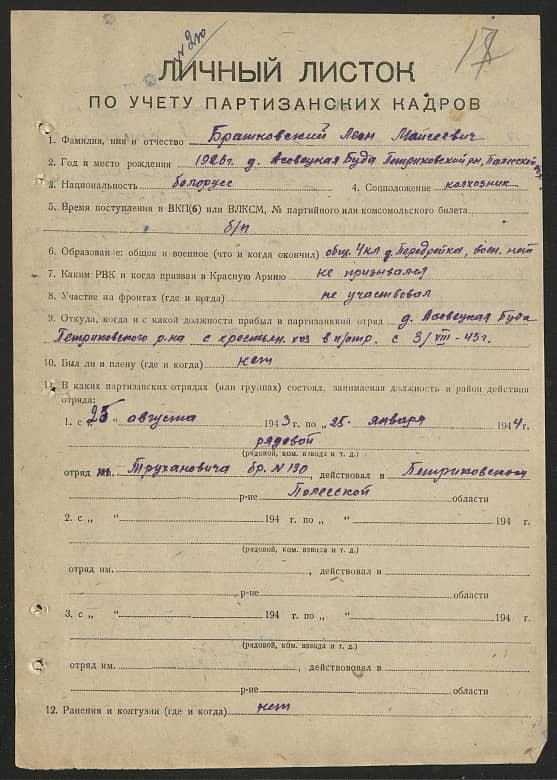 № 210
17
ЛИЧНЫЙ ЛИСТОК
ПО УЧЕТУ ПАРТИЗАНСКИХ КАДРОВ
1. Фамилия, имя и отчество Брашковский Леон Мойсеевич
2. Год и место рождения 1926 г. д. Осовецкая Буда Петриковский рн, Полесской
3. Национальность белорусс 4. Соцположение колхозник
5. Время поступления в ВКП(б) или ВЛКСМ, № партийного или комсомольского билета
б/п
6. Образование: общее и военное (что и когда окончил) общ. 4 кл д. , воен. нет
7. Каким РВК и когда призван в Красную Армию не призывался
8. Участие на фронтах (где и когда) не участвовал
9. Откуда, когда и с какой должности прибыл в партизанский отряд д. Осовецкая Буда
Петриковского р-на с крестьян. хоз в п/отр. с 3/VIII-43 г.
10. Был ли в плену (где и когда) нет
11. В каких партизанских отрядах (или группах) состоял, занимаемая должность и район действия
отряда:
1. с „25" августа 1943 г. по „25" января 1944 г.
рядовой
(рядовой, ком. взвода и т. д.)
отряд им. Трухановича бр. № 130, действовал в Петриковском
р-не Полесской области
2. с „ " 194 г. по „ " 194 г.
(рядовой, ком. взвода и т. д.)
отряд им. , действовал в
р-не области
3. с „ " 194 г. по „ " 194 г.
(рядовой, ком. взвода и т. д.)
отряд им. , действовал в
р-не области
12. Ранения и контузии (где и когда) нет